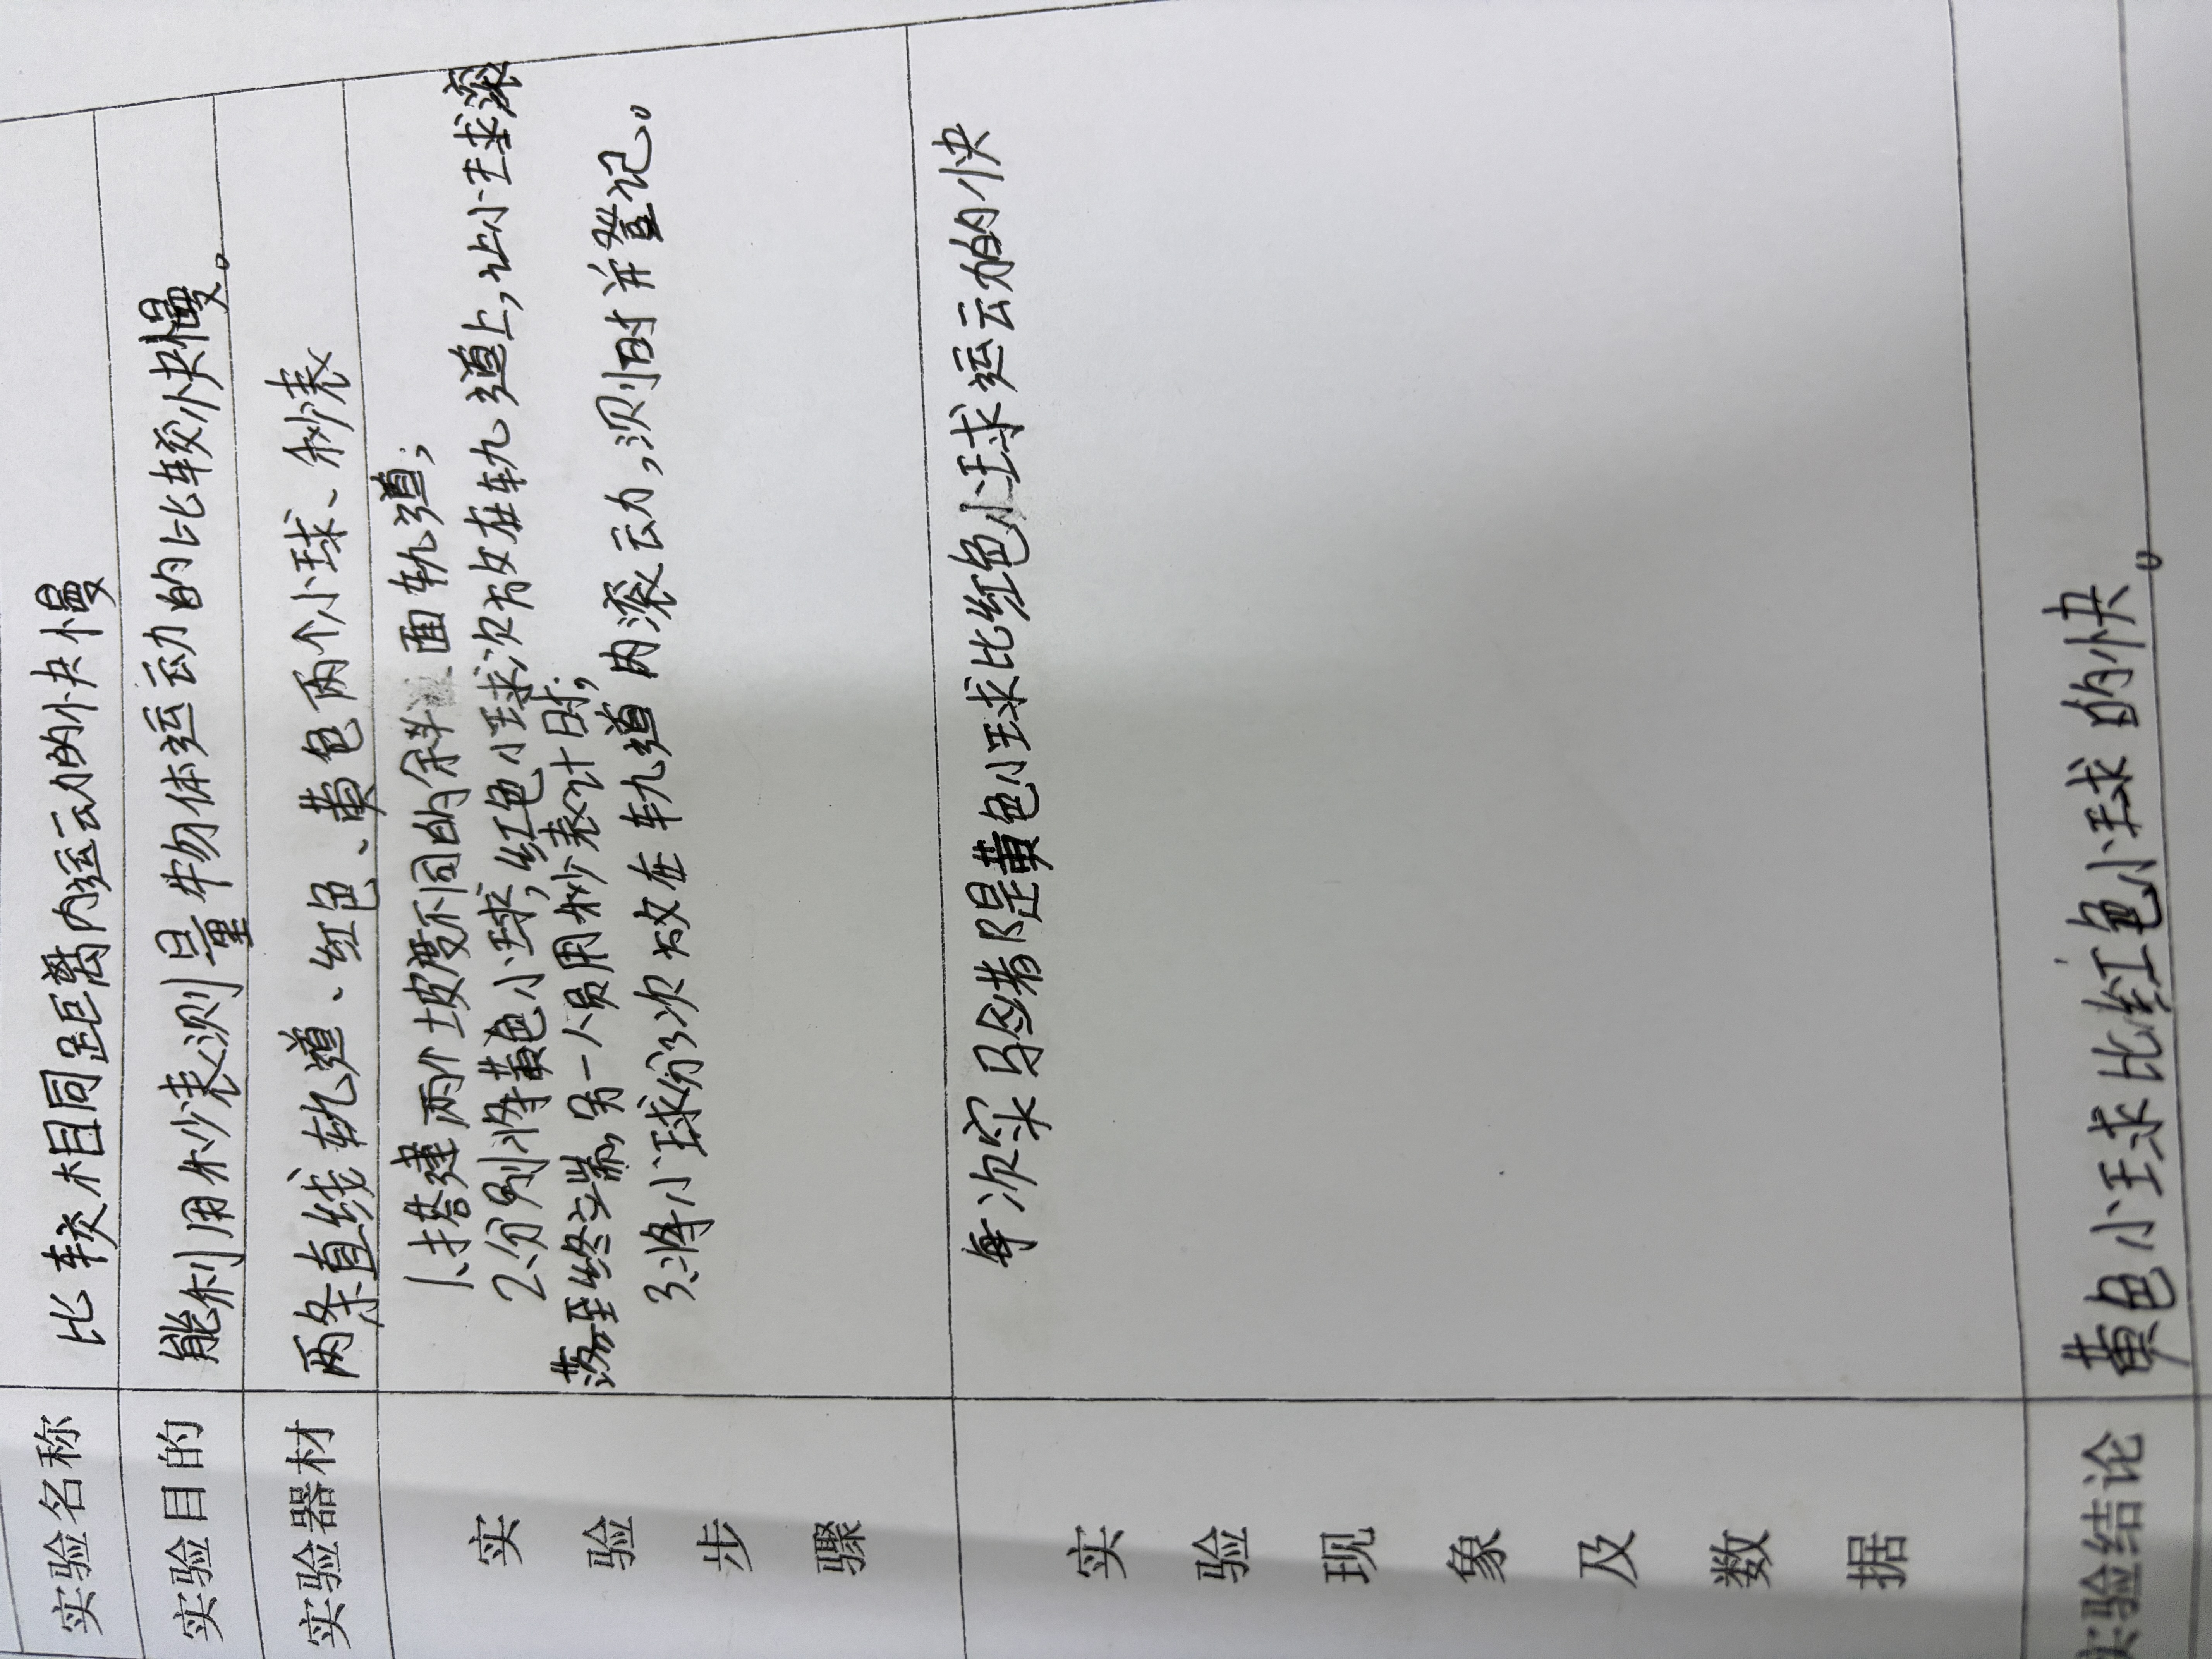 实验名称 比较相同距离内运动的快慢
实验目的 能利用秒表测量物体运动的比较快慢。
实验器材 两条直线轨道、红色、黄色两个小球、秒表
实验步骤
1、搭建两个坡度不同的斜面轨道;
2、分别将黄色小球,红色小球次放在轨道上,让小球滚
落至终端,另一人员用秒表计时;
3、将小球分3次放在轨道内滚动,测时并登记。
实验现象及数据
每次实验都是黄色小球比红色小球运动的快
实验结论 黄色小球比红色小球的快。